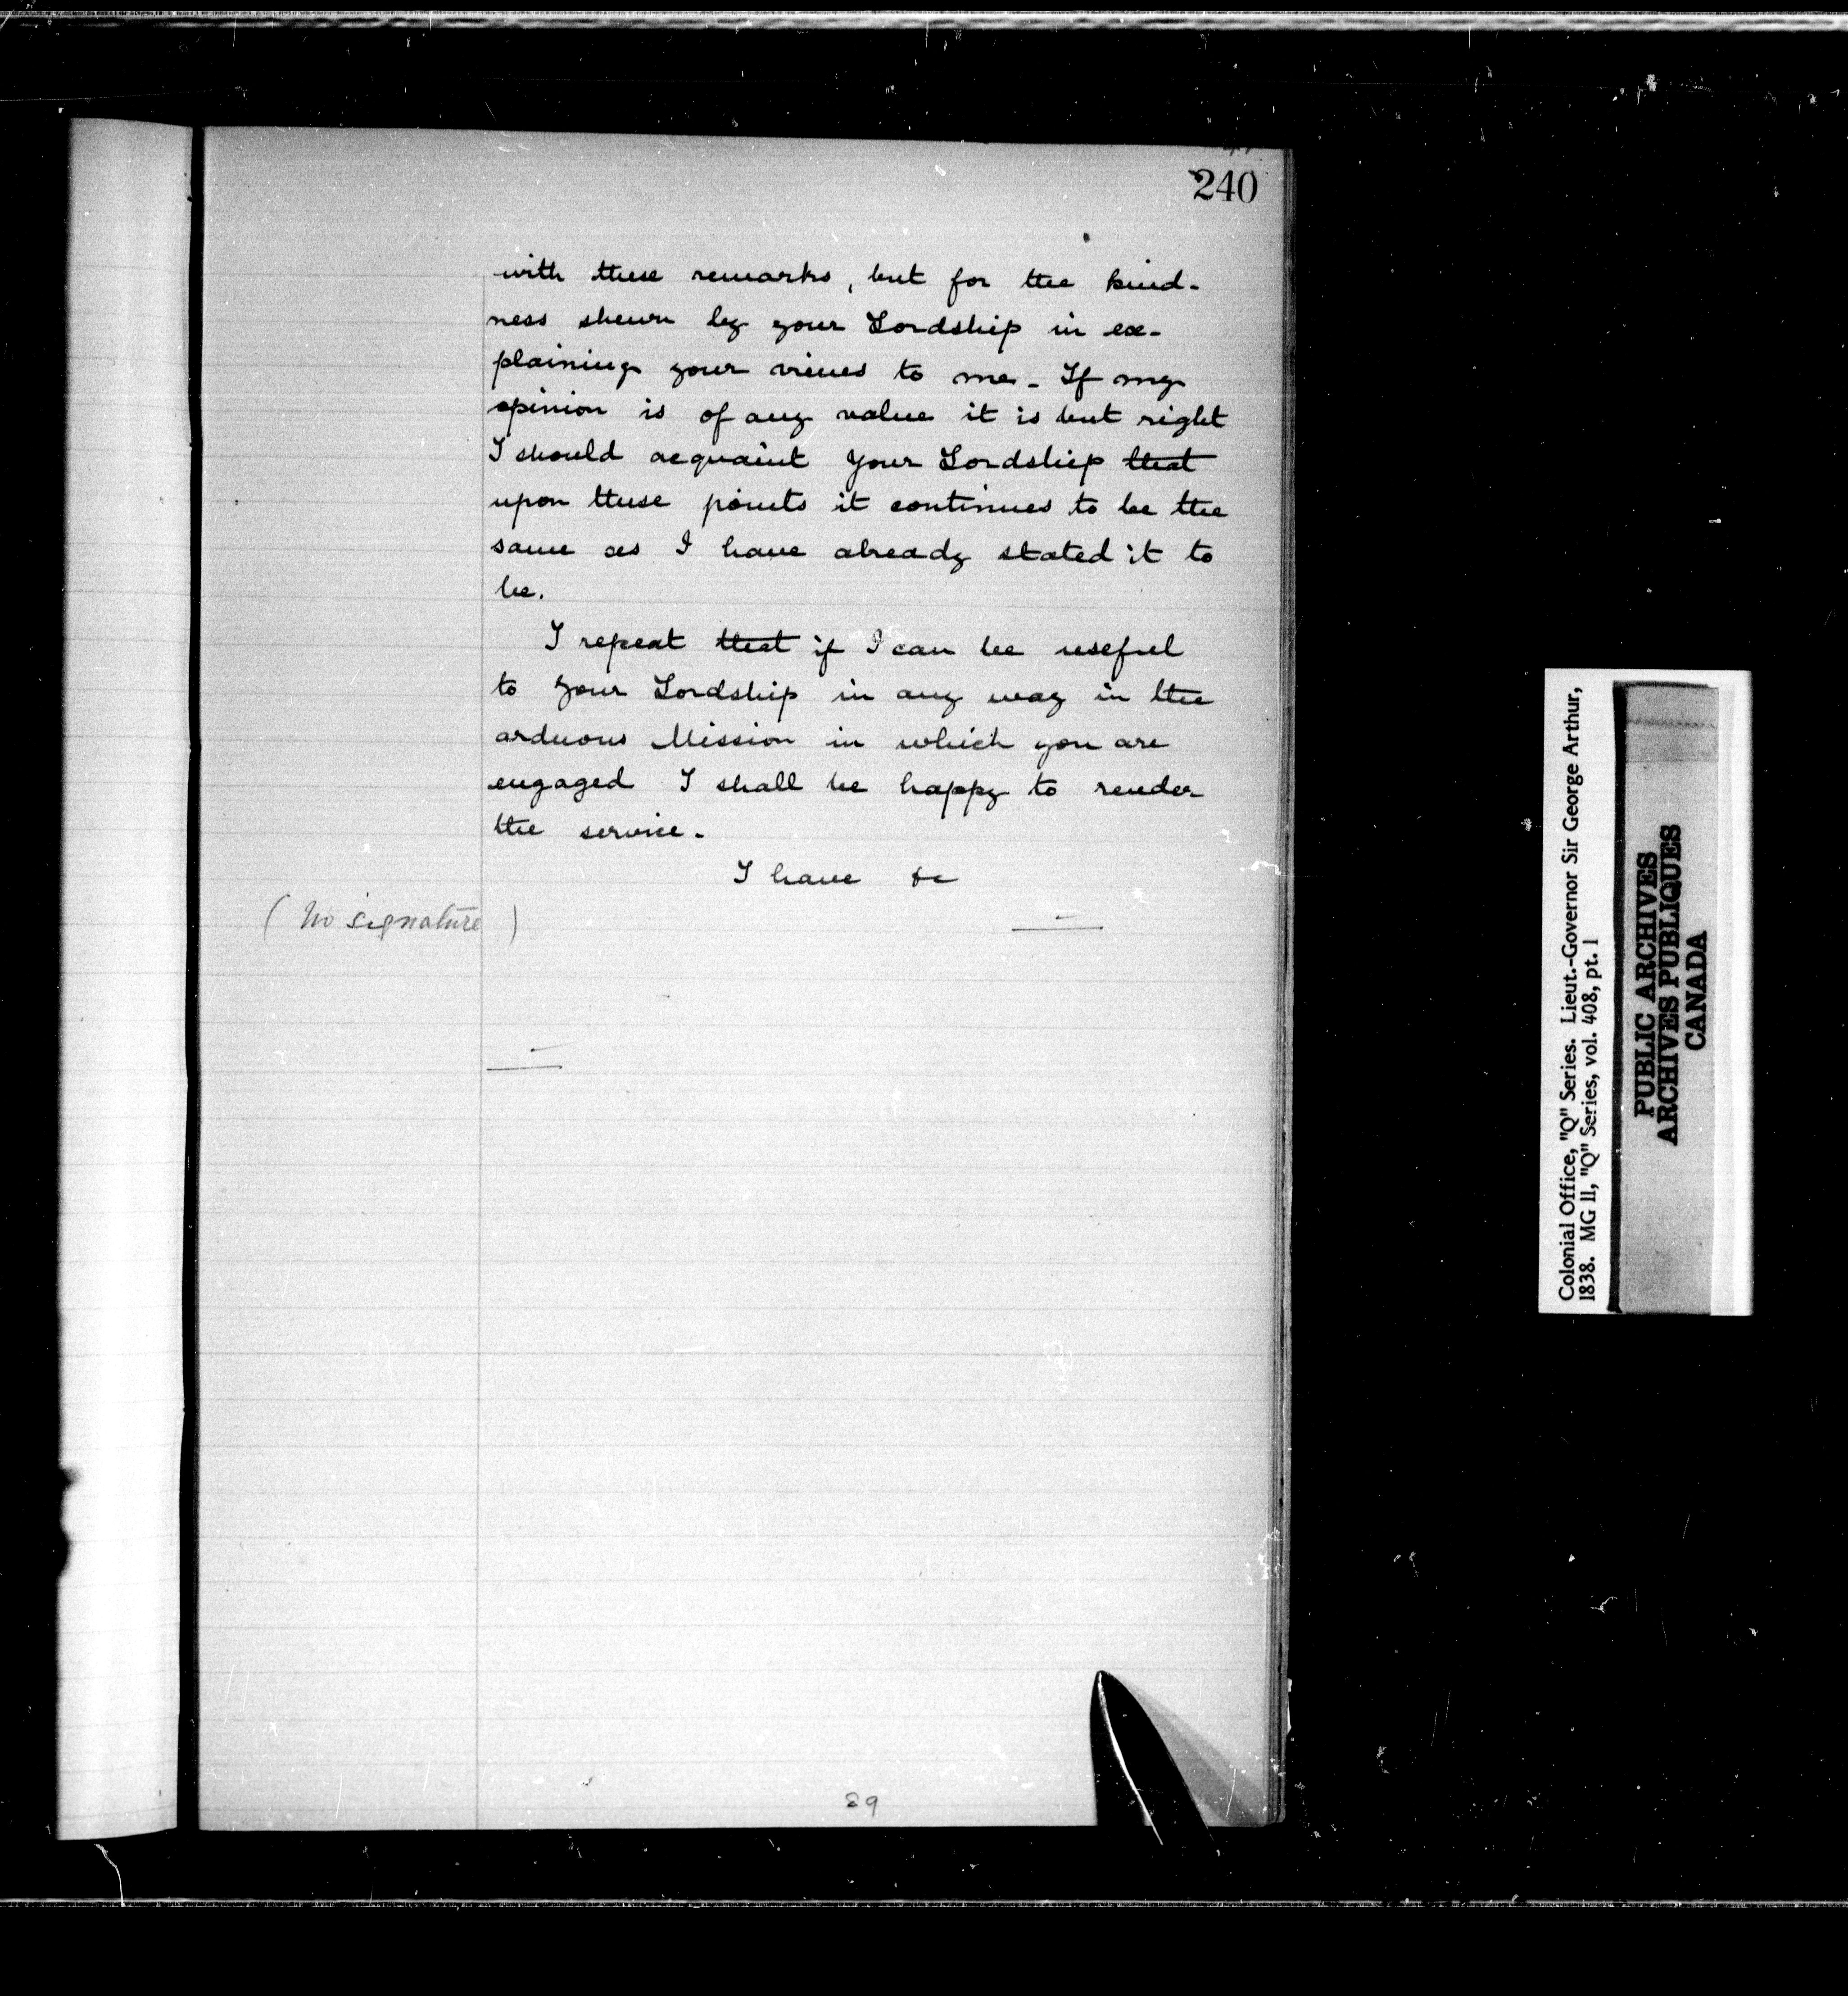 240
with these remarks, but for the kind-
ness shewn by your Lordship in ex-
plaining your views to me - If my
opinion is of any value it is but right
I should acquaint your Lordship that
upon these points it continues to be the
same as I have already stated it to
be.
I repeat that if I can be useful
to your Lordship in any way in the
arduous Mission in which you are
engaged I shall be happy to render
the service -
I have &c
(No signature)
89
Colonial Office, "Q" Series. Lieut.-Governor Sir George Arthur,
1838. MG 11, "Q" Series, vol. 408, pt. 1
PUBLIC ARCHIVES
ARCHIVES PUBLIQUES
CANADA